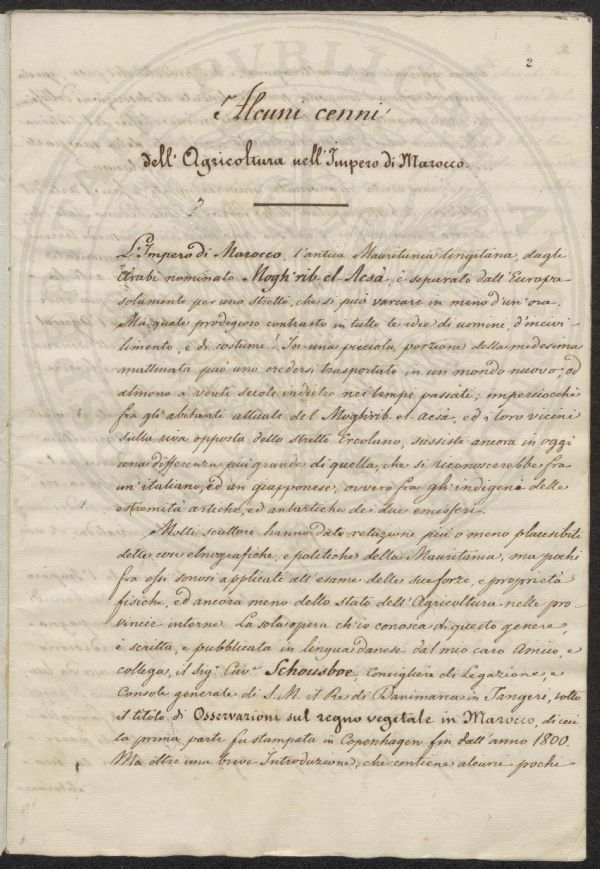 2
Alcuni cenni
dell'Agricoltura nell'Impero di Marocco.
L'Impero di Marocco, l'antica Mauritania tingitana, dagli
Arabi nominato Mogh'rib el Acsà, è separato dall'Europa
solamente per uno stretto, che si può varcare in meno d'un'ora.
Ma quale prodigioso contrasto in tutte le idee di uomini, d'incivi-
limento, e di costumi! In una picciola porzione della medesima
mattinata può uno credersi trasportato in un mondo nuovo; od
almeno a venti secoli indietro nei tempi passati; imperciocchè
fra gli abitanti attuali del Moghrib el Acsà, ed i loro vicini
sulla riva opposta dello stretto Ercolano, sussiste ancora in oggi
una differenza più grande di quella, che si riconoscerebbe fra
un'italiano, ed un giapponese, ovvero fra gli indigeni delle
estremità artiche, ed antartiche dei due emisferi.
Molti scrittori hanno dato relazioni più o meno plausibili
delle cose etnografiche, e politiche della Mauritania, ma pochi
fra essi sonosi applicati all'esame delle sue forze, e proprietà
fisiche, ed ancora meno dello stato dell'Agricoltura nelle pro-
vincie interne. La sola opera ch'io conosca di questo genere,
è scritta, e pubblicata in lingua danese dal mio caro Amico, e
collega, il Sigr Cavr Schousboe, Consigliere di Legazione, e
Console generale di S. M. il Re di Danimarca in Tangeri, sotto
il titolo di Osservazioni sul regno vegetale in Marocco, di cui
la prima parte fu stampata in Copenhagen fin dall'anno 1800.
Ma oltre una breve Introduzione, che contiene alcuni pochi